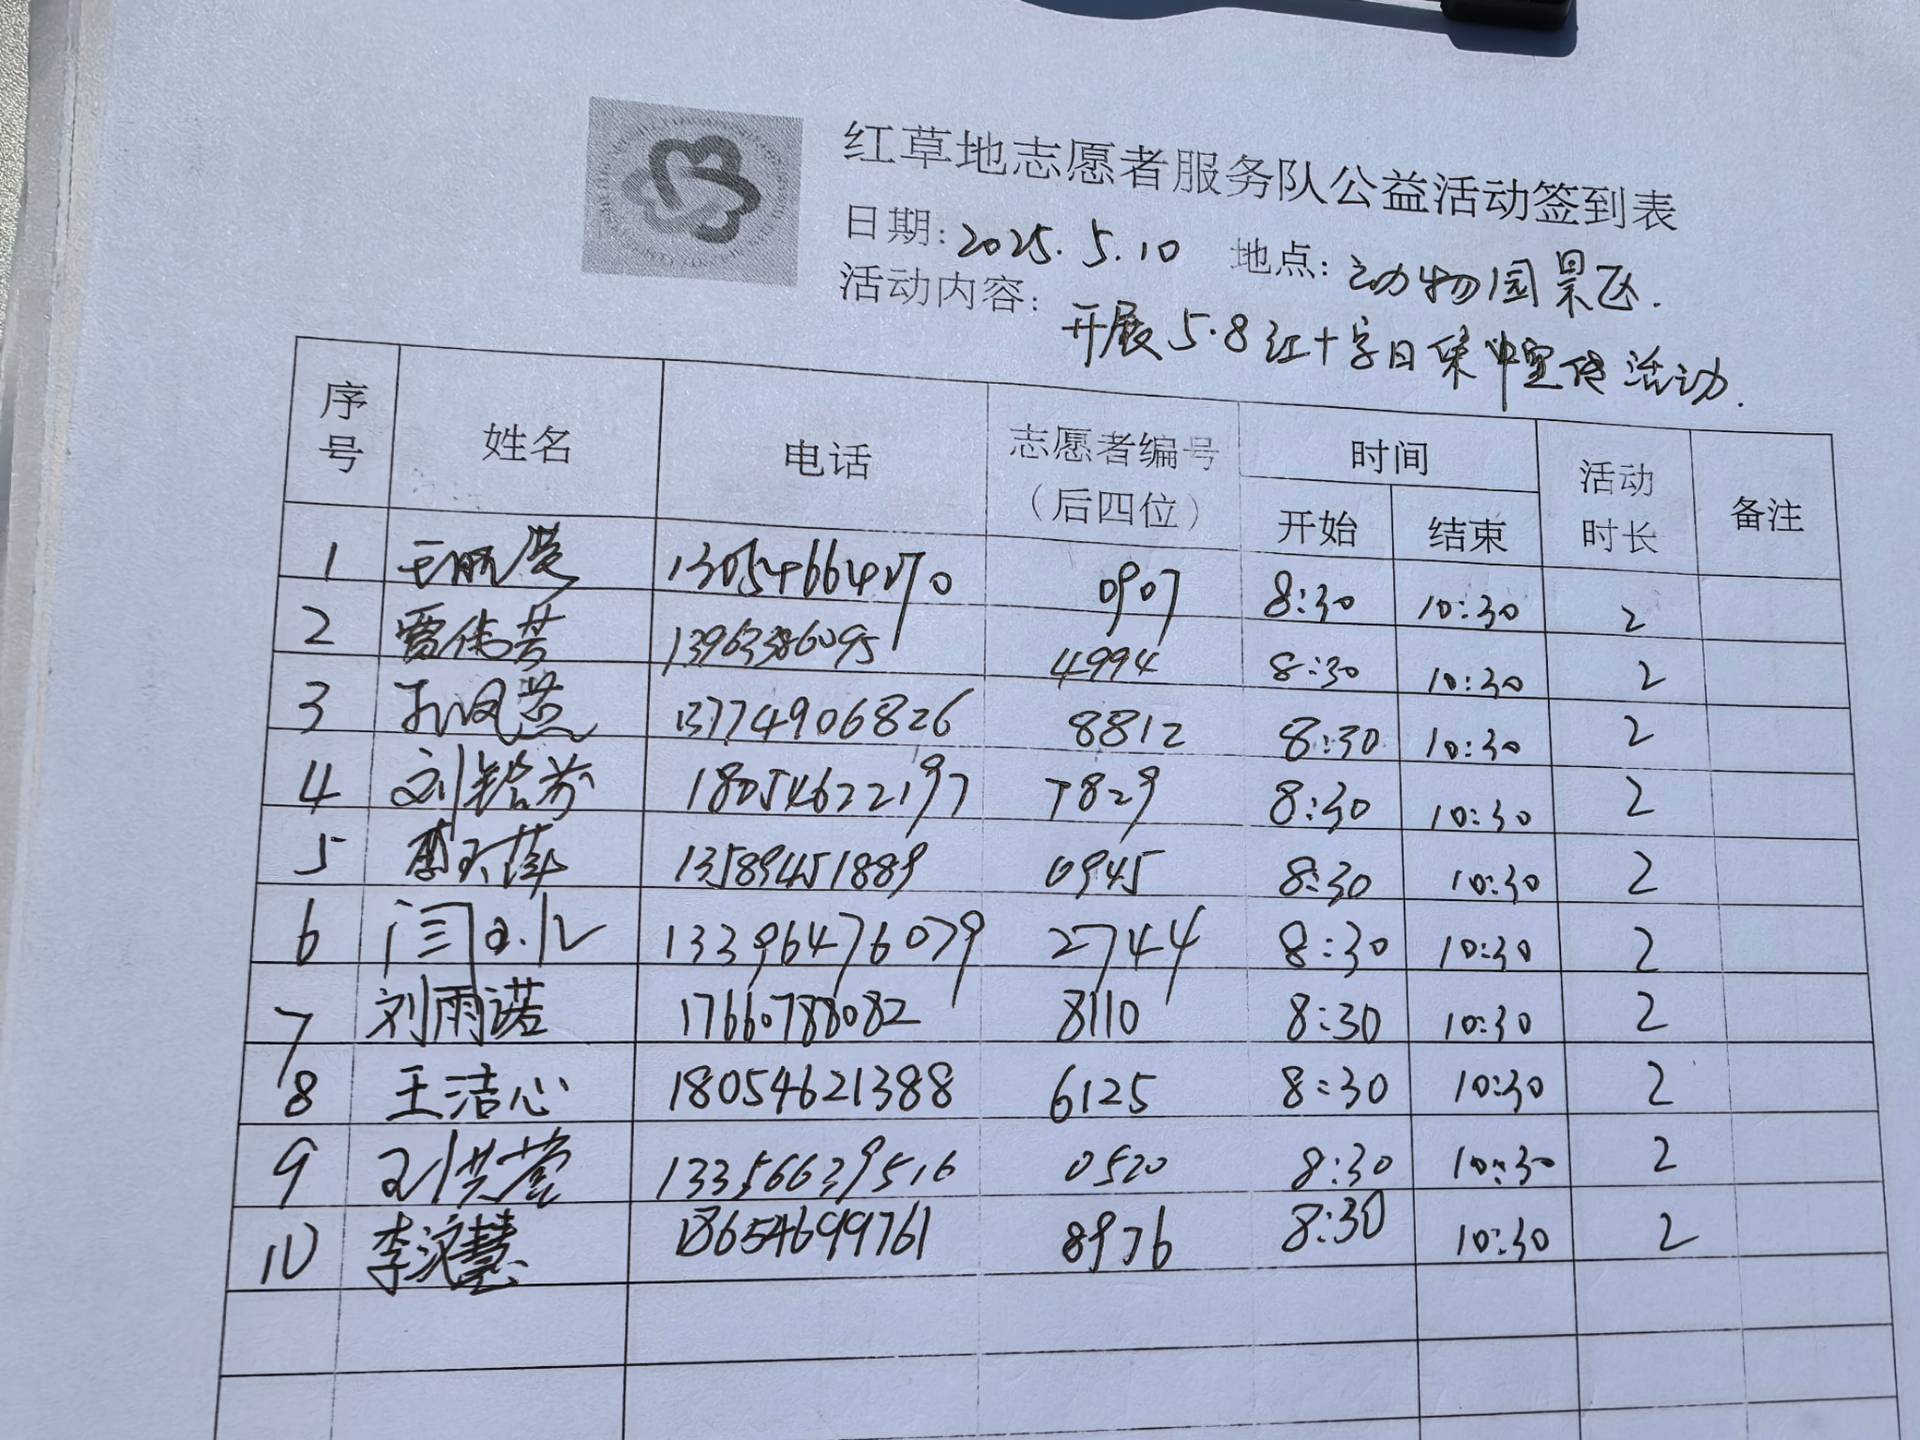 红草地志愿者服务队公益活动签到表
日期: 2025.5.10 地点: 动物园景区.
活动内容: 开展5.8红十字日集中宣传活动.
序号 姓名 电话 志愿者编号（后四位） 时间 开始 结束 活动时长 备注
1 0907 8:30 10:30 2
2 贾伟芳 13963386095 4994 8:30 10:30 2
3 孙凤英 13774906826 8812 8:30 10:30 2
4 刘铭芳 18054622197 7829 8:30 10:30 2
5 李玉萍 13589451889 0945 8:30 10:30 2
6 13396476079 2744 8:30 10:30 2
7 刘雨诺 17660788082 8110 8:30 10:30 2
8 王洁心 18054621388 6125 8:30 10:30 2
9 刘洪营 13356639516 0520 8:30 10:30 2
10 李文慧 18654699761 8976 8:30 10:30 2